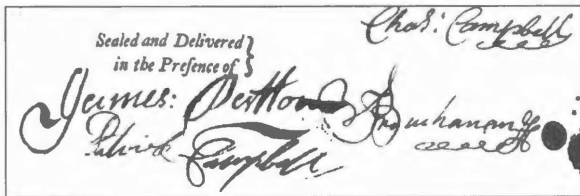 Chas: Campbell
Sealed and Delivered
in the Presence of
James:
Buchanan
Patrick
Campbell